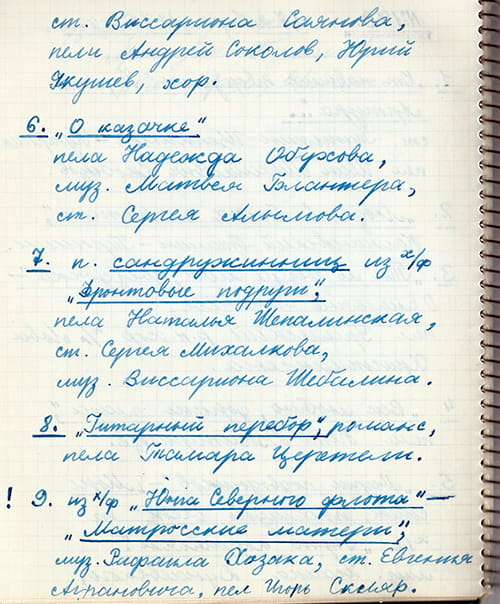 ст. Виссариона Саянова,
пели Андрей Соколов, Юрий
Якушев, хор.
6. „О казачке"
пела Надежда Обухова,
муз. Матвея Блантера,
ст. Сергея Алымова.
7. п. сандружинниц из х/ф
„Фронтовые подруги",
пела Наталья Шепалинская,
ст. Сергея Михалкова,
муз. Виссариона Шебалина.
8. „Гитарный перебор", романс,
пела Тамара Церетели.
! 9. из х/ф „Юнга Северного флота" —
„Матросские матери",
муз. Рафаила Хозака, ст. Евгения
Аграновича, пел Игорь Скляр.